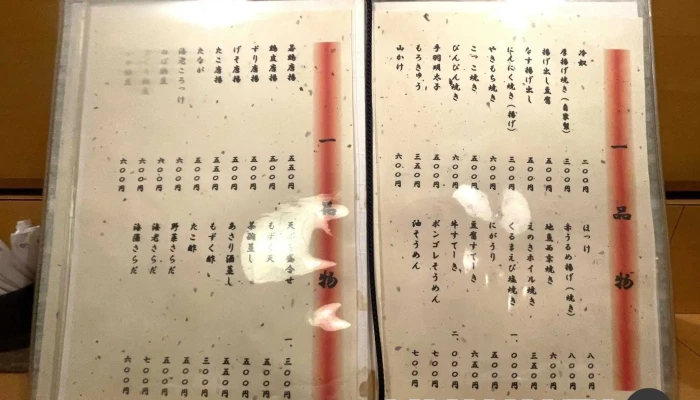 一品物
冷奴 二〇〇円
厚揚げ焼き(自家製) 三〇〇円
揚げ出し豆腐 五〇〇円
なす揚げ出し 五〇〇円
にんにく焼き(揚げ) 三〇〇円
やきもち焼き 六〇〇円
こっこ焼き 五〇〇円
ぴんぴん焼き 六〇〇円
手羽明太子 五五〇円
もろきゅう 三五〇円
山かけ 六〇〇円
ほっけ 八〇〇円
赤うるめ揚げ(焼き) 八〇〇円
西京焼き 六〇〇円
えのきホイル焼き 三五〇円
くるまえび塩焼き 一、〇〇〇円
にがうり 五〇〇円
豆腐すてーき 六五〇円
牛すてーき 二、〇〇〇円
ボンゴレそうめん 七〇〇円
油そうめん 七〇〇円
一品物
若鶏唐揚 五五〇円
鶏皮唐揚 五〇〇円
ずり唐揚 五〇〇円
げそ唐揚 五〇〇円
たこ唐揚 五五〇円
たなが 五〇〇円
海老ころっけ 六〇〇円
六〇〇円
六〇〇円
六〇〇円
天ぷら盛合せ 一、三〇〇円
もずく天 五〇〇円
茶碗蒸し 五〇〇円
あさり酒蒸し 五五〇円
もずく酢 三〇〇円
たこ酢 五〇〇円
野菜さらだ 五五〇円
海老さらだ 七〇〇円
海藻さらだ 六〇〇円